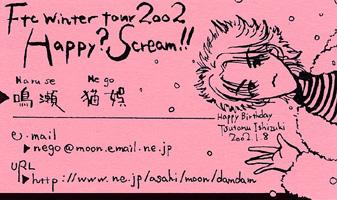 Ftc Winter tour 2002
Happy? Scream!!
Naruse Nego
鳴瀬 猫娯
e-mail
▶nego@moon.email.ne.jp
URL
▶http://www.ne.jp/asahi/moon/damdam
Happy Birthday
Tsutomu Ishizuki
2002.1.8